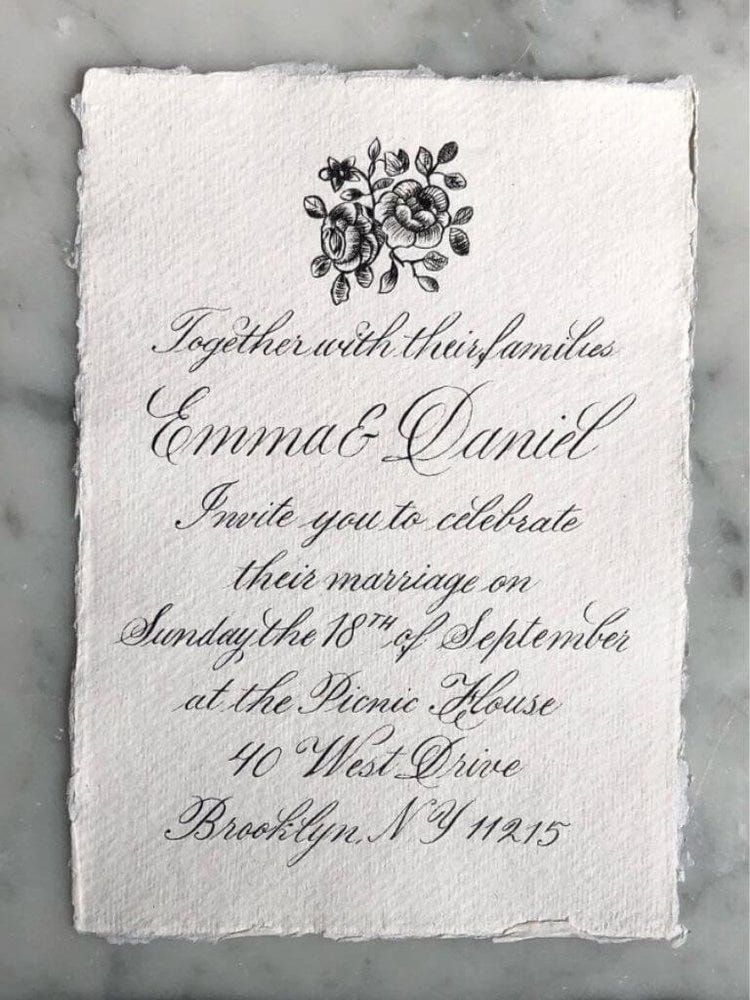 Together with their families
Emma & Daniel
Invite you to celebrate
their marriage on
Sunday the 18TH of September
at the Picnic House
40 West Drive
Brooklyn, NY 11215